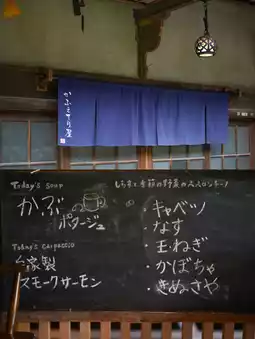 Today's soup
かぶ
ポタージュ
Today's carpaccio
自家製
スモークサーモン
もちすと季節の野菜のペペロンチーノ
・キャベツ
・なす
・玉ねぎ
・かぼちゃ
・きぬさや